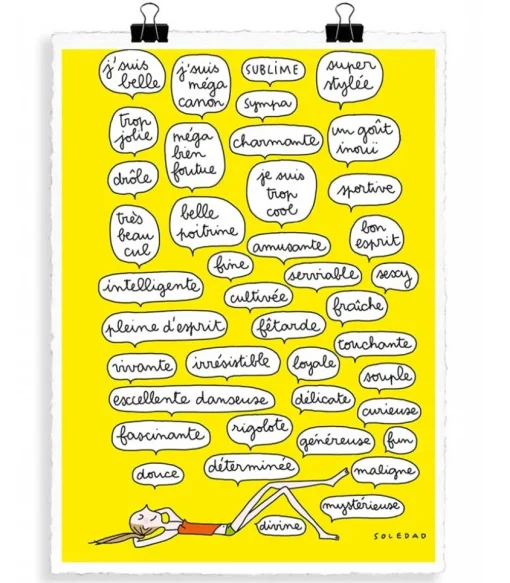 j'suis
belle
j'suis
méga
canon
SUBLIME
super
stylée
sympa
trop
jolie
méga
bien
foutue
charmante
un goût
inouï
drôle
je suis
trop
cool
sportive
très
beau
cul
belle
poitrine
amusante
bon
esprit
fine
serviable
sexy
intelligente
cultivée
fraîche
pleine d'esprit
fêtarde
touchante
vivante
irrésistible
loyale
souple
excellente danseuse
délicate
curieuse
fascinante
rigolote
généreuse
fun
douce
déterminée
maligne
mystérieuse
divine
SOLEDAD